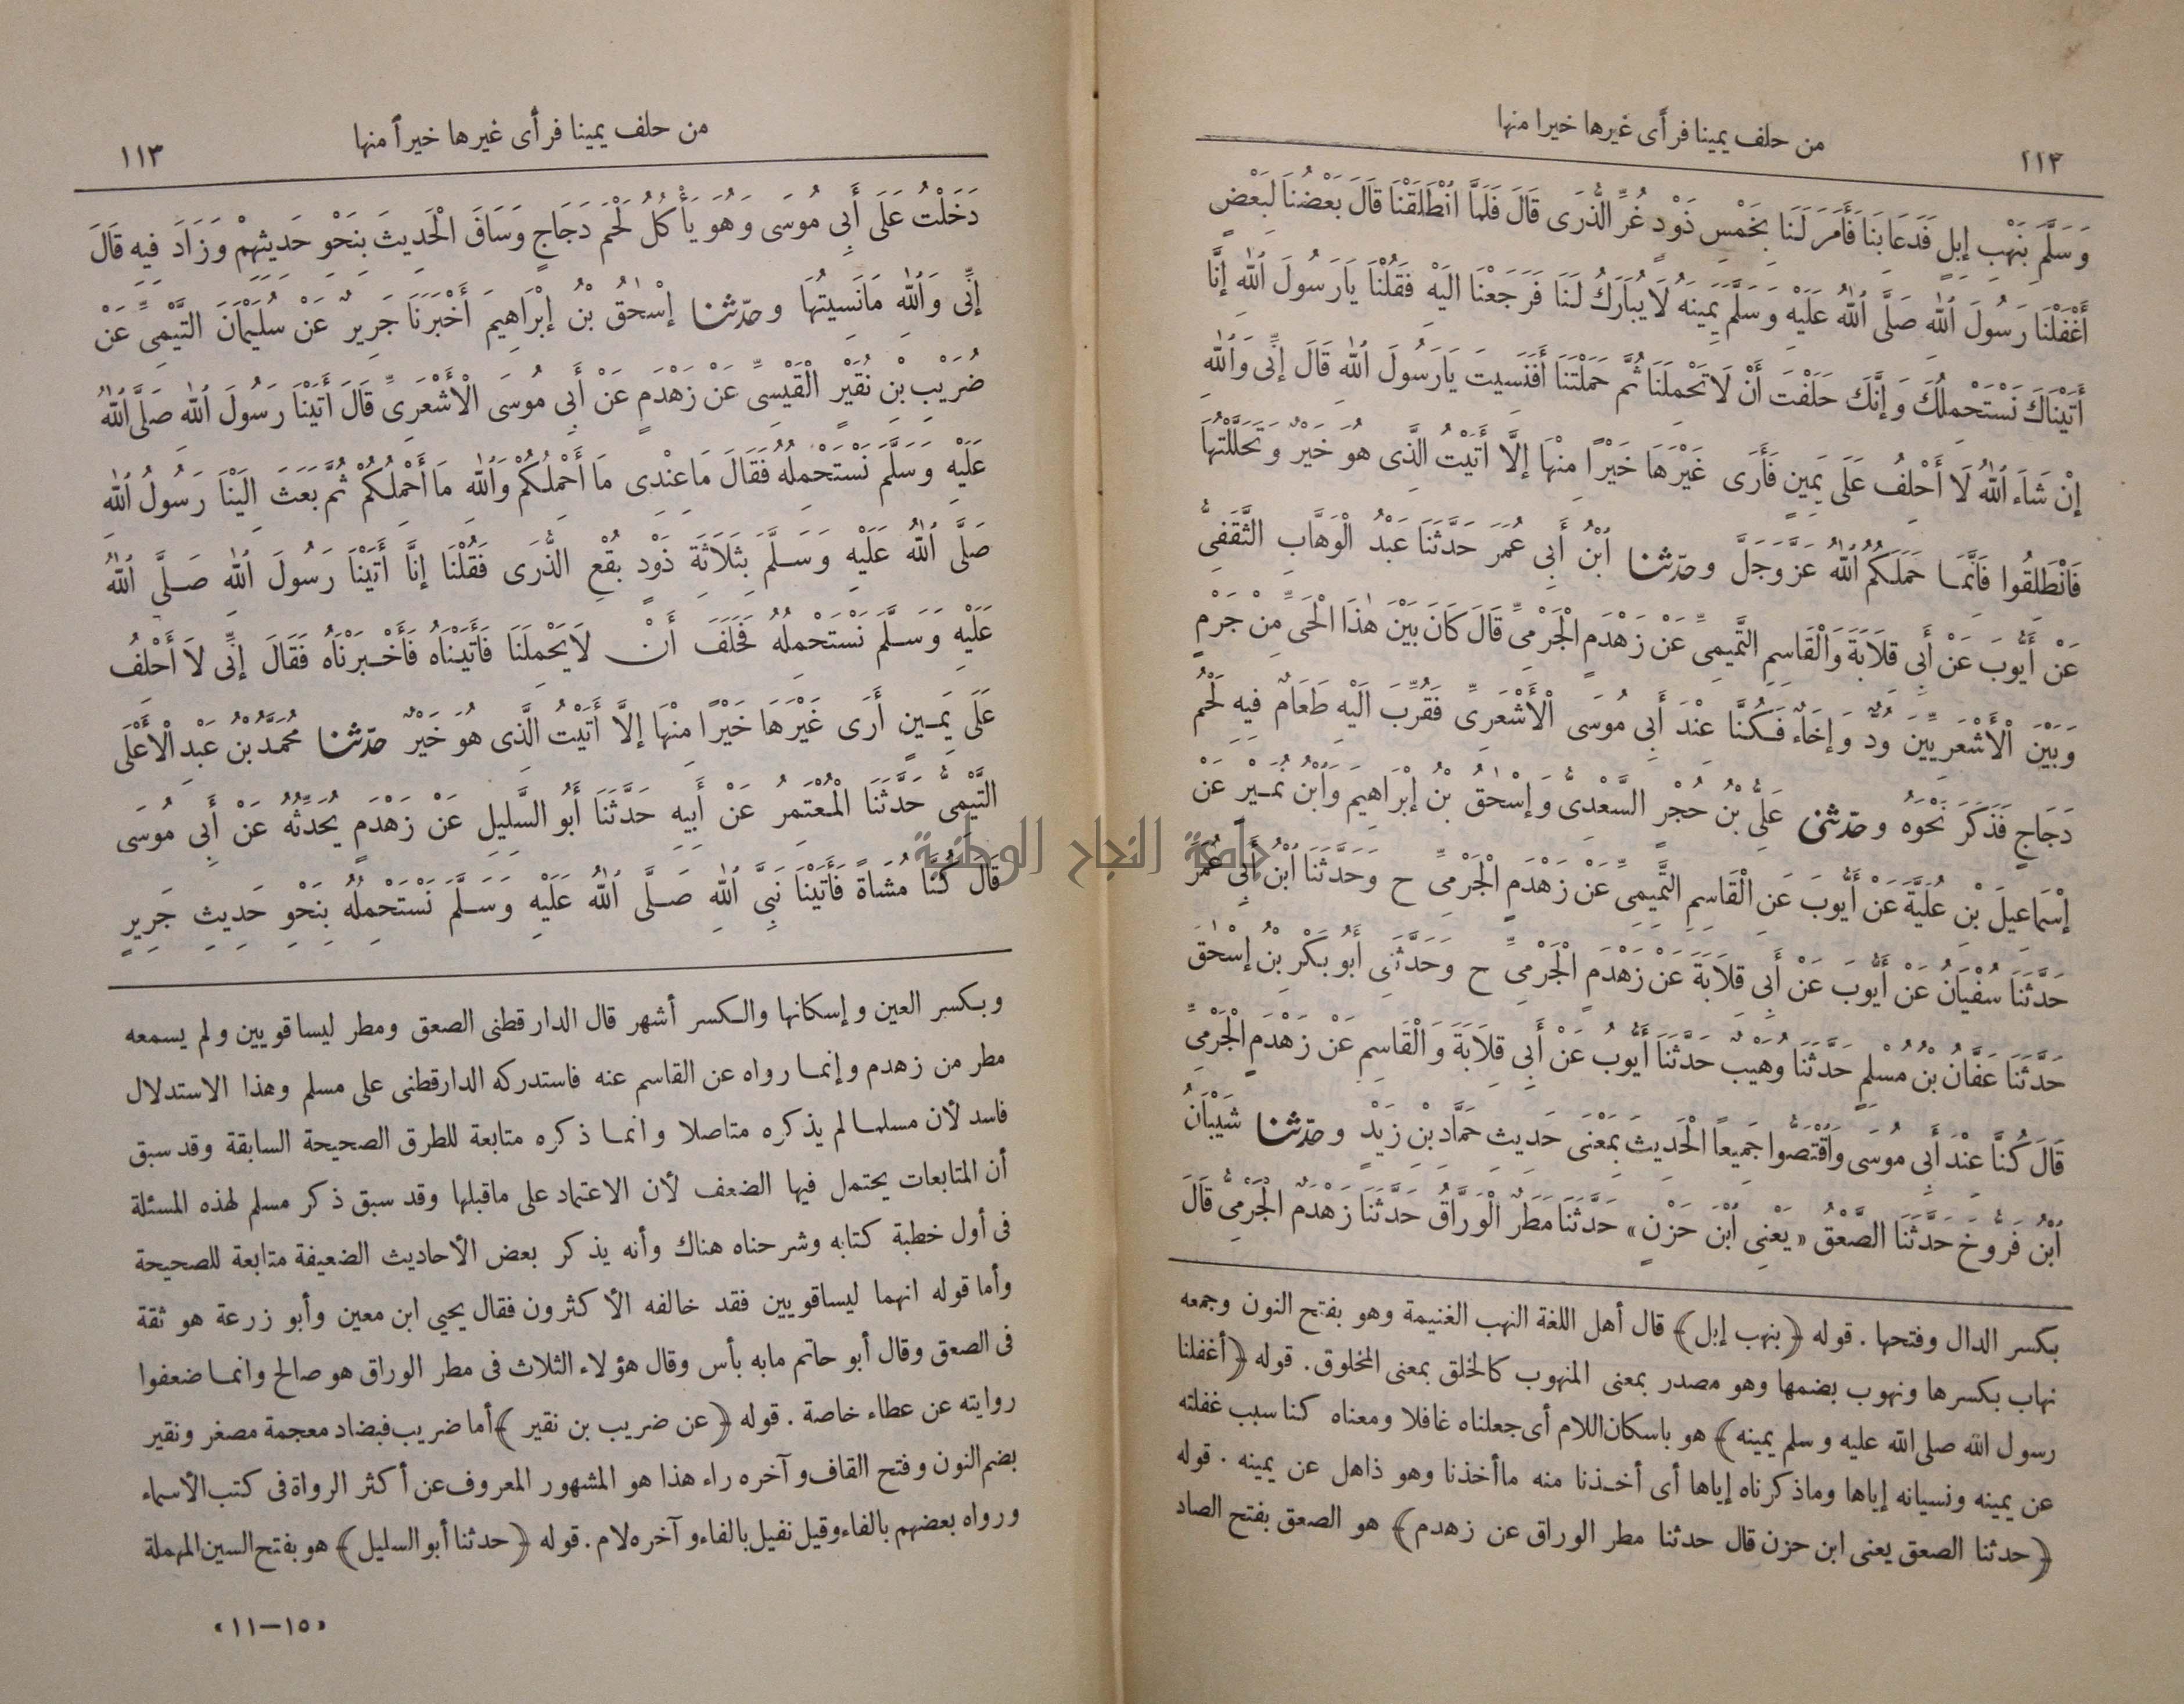 من حلف يمينا فرأى غيرها خيرا منها
١١٢
وَسَلَّمَ بِنَهْبِ إِبِلٍ فَدَعَا بِنَا فَأَمَرَ لَنَا بِخَمْسِ ذَوْدٍ غُرِّ الذُّرَى قَالَ فَلَمَّا انْطَلَقْنَا قَالَ بَعْضُنَا لِبَعْضٍ
أَغْفَلْنَا رَسُولَ اللهِ صَلَّى اللهُ عَلَيْهِ وَسَلَّمَ يَمِينَهُ لَا يُبَارَكُ لَنَا فَرَجَعْنَا إِلَيْهِ فَقُلْنَا يَا رَسُولَ اللهِ إِنَّا
أَتَيْنَاكَ نَسْتَحْمِلُكَ وَإِنَّكَ حَلَفْتَ أَنْ لَا تَحْمِلَنَا ثُمَّ حَمَلْتَنَا أَفَنَسِيتَ يَا رَسُولَ اللهِ قَالَ إِنِّى وَاللهِ
إِنْ شَاءَ اللهُ لَا أَحْلِفُ عَلَى يَمِينٍ فَأَرَى غَيْرَهَا خَيْرًا مِنْهَا إِلَّا أَتَيْتُ الَّذِى هُوَ خَيْرٌ وَتَحَلَّلْتُهَا
فَانْطَلِقُوا فَإِنَّمَا حَمَلَكُمُ اللهُ عَزَّ وَجَلَّ وحدّثنا ابْنُ أَبِى عُمَرَ حَدَّثَنَا عَبْدُ الْوَهَّابِ الثَّقَفِىُّ
عَنْ أَيُّوبَ عَنْ أَبِى قِلَابَةَ وَالْقَاسِمِ التَّمِيمِىِّ عَنْ زَهْدَمٍ الْجَرْمِىِّ قَالَ كَانَ بَيْنَ هٰذَا الْحَىِّ مِنْ جَرْمٍ
وَبَيْنَ الْأَشْعَرِيِّينَ وُدٌّ وَإِخَاءٌ فَكُنَّا عِنْدَ أَبِى مُوسَى الْأَشْعَرِىِّ فَقُرِّبَ إِلَيْهِ طَعَامٌ فِيهِ لَحْمُ
دَجَاجٍ فَذَكَرَ نَحْوَهُ وحدّثنى عَلِىُّ بْنُ حُجْرٍ السَّعْدِىُّ وَإِسْحٰقُ بْنُ إِبْرَاهِيمَ وَابْنُ نُمَيْرٍ عَنْ
إِسْمَاعِيلَ بْنِ عُلَيَّةَ عَنْ أَيُّوبَ عَنِ الْقَاسِمِ التَّمِيمِىِّ عَنْ زَهْدَمٍ الْجَرْمِىِّ ح وَحَدَّثَنَا ابْنُ أَبِى عُمَرَ
حَدَّثَنَا سُفْيَانُ عَنْ أَيُّوبَ عَنْ أَبِى قِلَابَةَ عَنْ زَهْدَمٍ الْجَرْمِىِّ ح وَحَدَّثَنِى أَبُو بَكْرِ بْنُ إِسْحٰقَ
حَدَّثَنَا عَفَّانُ بْنُ مُسْلِمٍ حَدَّثَنَا وُهَيْبٌ حَدَّثَنَا أَيُّوبُ عَنْ أَبِى قِلَابَةَ وَالْقَاسِمِ عَنْ زَهْدَمٍ الْجَرْمِىِّ
قَالَ كُنَّا عِنْدَ أَبِى مُوسَى وَاقْتَصُّوا جَمِيعًا الْحَدِيثَ بِمَعْنَى حَدِيثِ حَمَّادِ بْنِ زَيْدٍ وحدّثنا شَيْبَانُ
ابْنُ فَرُّوخَ حَدَّثَنَا الصَّعْقُ «يَعْنِى ابْنَ حَزْنٍ» حَدَّثَنَا مَطَرٌ الْوَرَّاقُ حَدَّثَنَا زَهْدَمٌ الْجَرْمِىُّ قَالَ
بكسر الدال وفتحها . قوله ﴿بنهب إبل﴾ قال أهل اللغة النهب الغنيمة وهو بفتح النون وجمعه
نهاب بكسرها ونهوب بضمها وهو مصدر بمعنى المنهوب كالخلق بمعنى المخلوق . قوله ﴿أغفلنا
رسول الله صلى الله عليه وسلم يمينه﴾ هو باسكان اللام أى جعلناه غافلا ومعناه كنا سبب غفلته
عن يمينه ونسيانه إياها وماذكرناه إياها أى أخذنا منه ماأخذنا وهو ذاهل عن يمينه . قوله
﴿حدثنا الصعق يعنى ابن حزن قال حدثنا مطر الوراق عن زهدم﴾ هو الصعق بفتح الصاد
من حلف يمينا فرأى غيرها خيراً منها
١١٣
دَخَلْتُ عَلَى أَبِى مُوسَى وَهُوَ يَأْكُلُ لَحْمَ دَجَاجٍ وَسَاقَ الْحَدِيثَ بِنَحْوِ حَدِيثِهِمْ وَزَادَ فِيهِ قَالَ
إِنِّى وَاللهِ مَانَسِيتُهَا وحدّثنا إِسْحٰقُ بْنُ إِبْرَاهِيمَ أَخْبَرَنَا جَرِيرٌ عَنْ سُلَيْمَانَ التَّيْمِىِّ عَنْ
ضُرَيْبِ بْنِ نُقَيْرٍ الْقَيْسِىِّ عَنْ زَهْدَمٍ عَنْ أَبِى مُوسَى الْأَشْعَرِىِّ قَالَ أَتَيْنَا رَسُولَ اللهِ صَلَّى اللهُ
عَلَيْهِ وَسَلَّمَ نَسْتَحْمِلُهُ فَقَالَ مَاعِنْدِى مَا أَحْمِلُكُمْ وَاللهِ مَا أَحْمِلُكُمْ ثُمَّ بَعَثَ إِلَيْنَا رَسُولُ اللهِ
صَلَّى اللهُ عَلَيْهِ وَسَلَّمَ بِثَلَاثَةِ ذَوْدٍ بُقْعِ الذُّرَى فَقُلْنَا إِنَّا أَتَيْنَا رَسُولَ اللهِ صَلَّى اللهُ
عَلَيْهِ وَسَلَّمَ نَسْتَحْمِلُهُ فَحَلَفَ أَنْ لَايَحْمِلَنَا فَأَتَيْنَاهُ فَأَخْبَرْنَاهُ فَقَالَ إِنِّى لَا أَحْلِفُ
عَلَى يَمِينٍ أَرَى غَيْرَهَا خَيْرًا مِنْهَا إِلَّا أَتَيْتُ الَّذِى هُوَ خَيْرٌ حدّثنا مُحَمَّدُ بْنُ عَبْدِ الْأَعْلَى
التَّيْمِىُّ حَدَّثَنَا الْمُعْتَمِرُ عَنْ أَبِيهِ حَدَّثَنَا أَبُو السَّلِيلِ عَنْ زَهْدَمٍ يُحَدِّثُهُ عَنْ أَبِى مُوسَى
قَالَ كُنَّا مُشَاةً فَأَتَيْنَا نَبِىَّ اللهِ صَلَّى اللهُ عَلَيْهِ وَسَلَّمَ نَسْتَحْمِلُهُ بِنَحْوِ حَدِيثِ جَرِيرٍ
وبكسر العين وإسكانها والكسر أشهر قال الدارقطنى الصعق ومطر ليسا قويين ولم يسمعه
مطر من زهدم وإنما رواه عن القاسم عنه فاستدركه الدارقطنى على مسلم وهذا الاستدلال
فاسد لأن مسلما لم يذكره متاصلا وانما ذكره متابعة للطرق الصحيحة السابقة وقد سبق
أن المتابعات يحتمل فيها الضعف لأن الاعتماد على ماقبلها وقد سبق ذكر مسلم لهذه المسئلة
فى أول خطبة كتابه وشرحناه هناك وأنه يذكر بعض الأحاديث الضعيفة متابعة للصحيحة
وأما قوله انهما ليسا قويين فقد خالفه الأكثرون فقال يحيي ابن معين وأبو زرعة هو ثقة
فى الصعق وقال أبو حاتم مابه بأس وقال هؤلاء الثلاث فى مطر الوراق هو صالح وانما ضعفوا
روايته عن عطاء خاصة . قوله ﴿عن ضريب بن نقير﴾ أما ضريب فبضاد معجمة مصغر ونقير
بضم النون وفتح القاف وآخره راء هذا هو المشهور المعروف عن أكثر الرواة فى كتب الأسماء
ورواه بعضهم بالفاء وقيل نفيل بالفاء وآخره لام . قوله ﴿حدثنا أبو السليل﴾ هو بفتح السين المهملة
«١٥—١١»
جامعة النجاح الوطنية